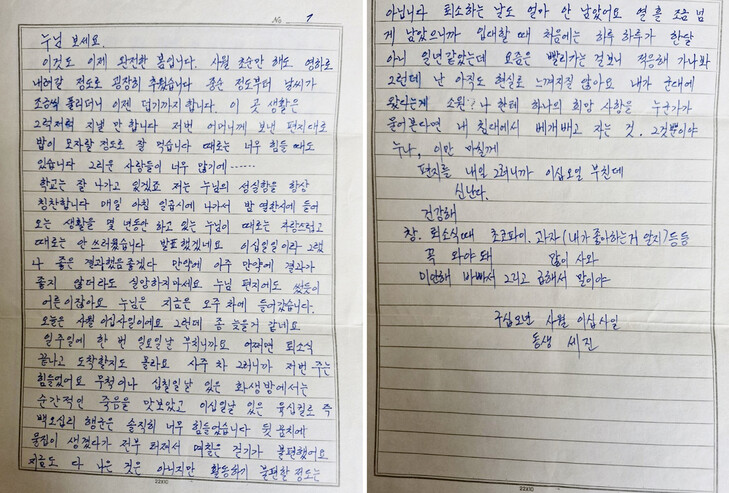 No 1
누님 보세요.
이곳도 이제 완전한 봄입니다. 사월 초순만 해도 영하로
내려갈 정도로 굉장히 추웠습니다 중순 정도부터 날씨가
조금씩 풀리더니 이젠 덥기까지 합니다. 이 곳 생활은
그럭저럭 지낼 만 합니다 저번 어머니께 보낸 편지대로
밥이 모자랄 정도로 잘 먹습니다 때로는 너무 힘들 때도
있습니다 그리운 사람들이 너무 많기에……
학교는 잘 나가고 있겠죠 저는 누님의 성실함을 항상
칭찬합니다 매일 아침 일곱시에 나가서 밤 열한시에 들어
오는 생활을 몇 년동안 하고 있는 누님이 때로는 자랑스럽고
때로는 안 쓰러웠습니다 발표했겠네요 이십일일이라 그랬
나 좋은 결과였음 좋겠다 만약에 아주 만약에 결과가
좋지 않더라도 실망하지마세요 누님 편지에도 썼듯이
어른이잖아요 누님은 지금은 오주 차에 들어갔습니다.
오늘은 사월 이십사일이에요 그런데 좀 늦을거 같네요
일주일에 한 번 일요일날 부치니까요 어쩌면 퇴소식
끝나고 도착할지도 몰라요 사주 차 그러니까 저번 주는
힘들었어요 무척이나 십칠일날 있은 화생방에서는
순간적인 죽음을 맛보았고 이십일날 있은 육십킬로 즉
백오십리 행군은 솔직히 너무 힘들었습니다 뒷꿈치에
물집이 생겼다가 전부 터져서 며칠은 걷기가 불편했어요
지금도 다 나은 것은 아니지만 활동하기 불편할 정도는
22XIC
아닙니다 퇴소하는 날도 얼마 안 남았어요 열흘 조금 넘
게 남았으니까 입대할 때 처음에는 하루 하루가 한달
아니 일년같았는데 요즘은 빨리가는 걸보니 적응해 가나봐
그런데 난 아직도 현실로 느껴지질 않아요 내가 군대에
왔다는게 소원? 나 한테 하나의 희망 사항을 누군가가
물어본다면 내 침대에서 베개베고 자는 것. 그것뿐이야
누나, 이만 마칠께
편지를 내일 그러니까 이십오일 부친데
신난다.
건강해
참. 퇴소식때 초코파이. 과자 (내가 좋아하는거 알지) 등등
꼭 와야 돼 많이 사와
미안해 바빠서 그리고 급해서 말이야
구십오년 사월 이십사일
동생 세진
22XIC